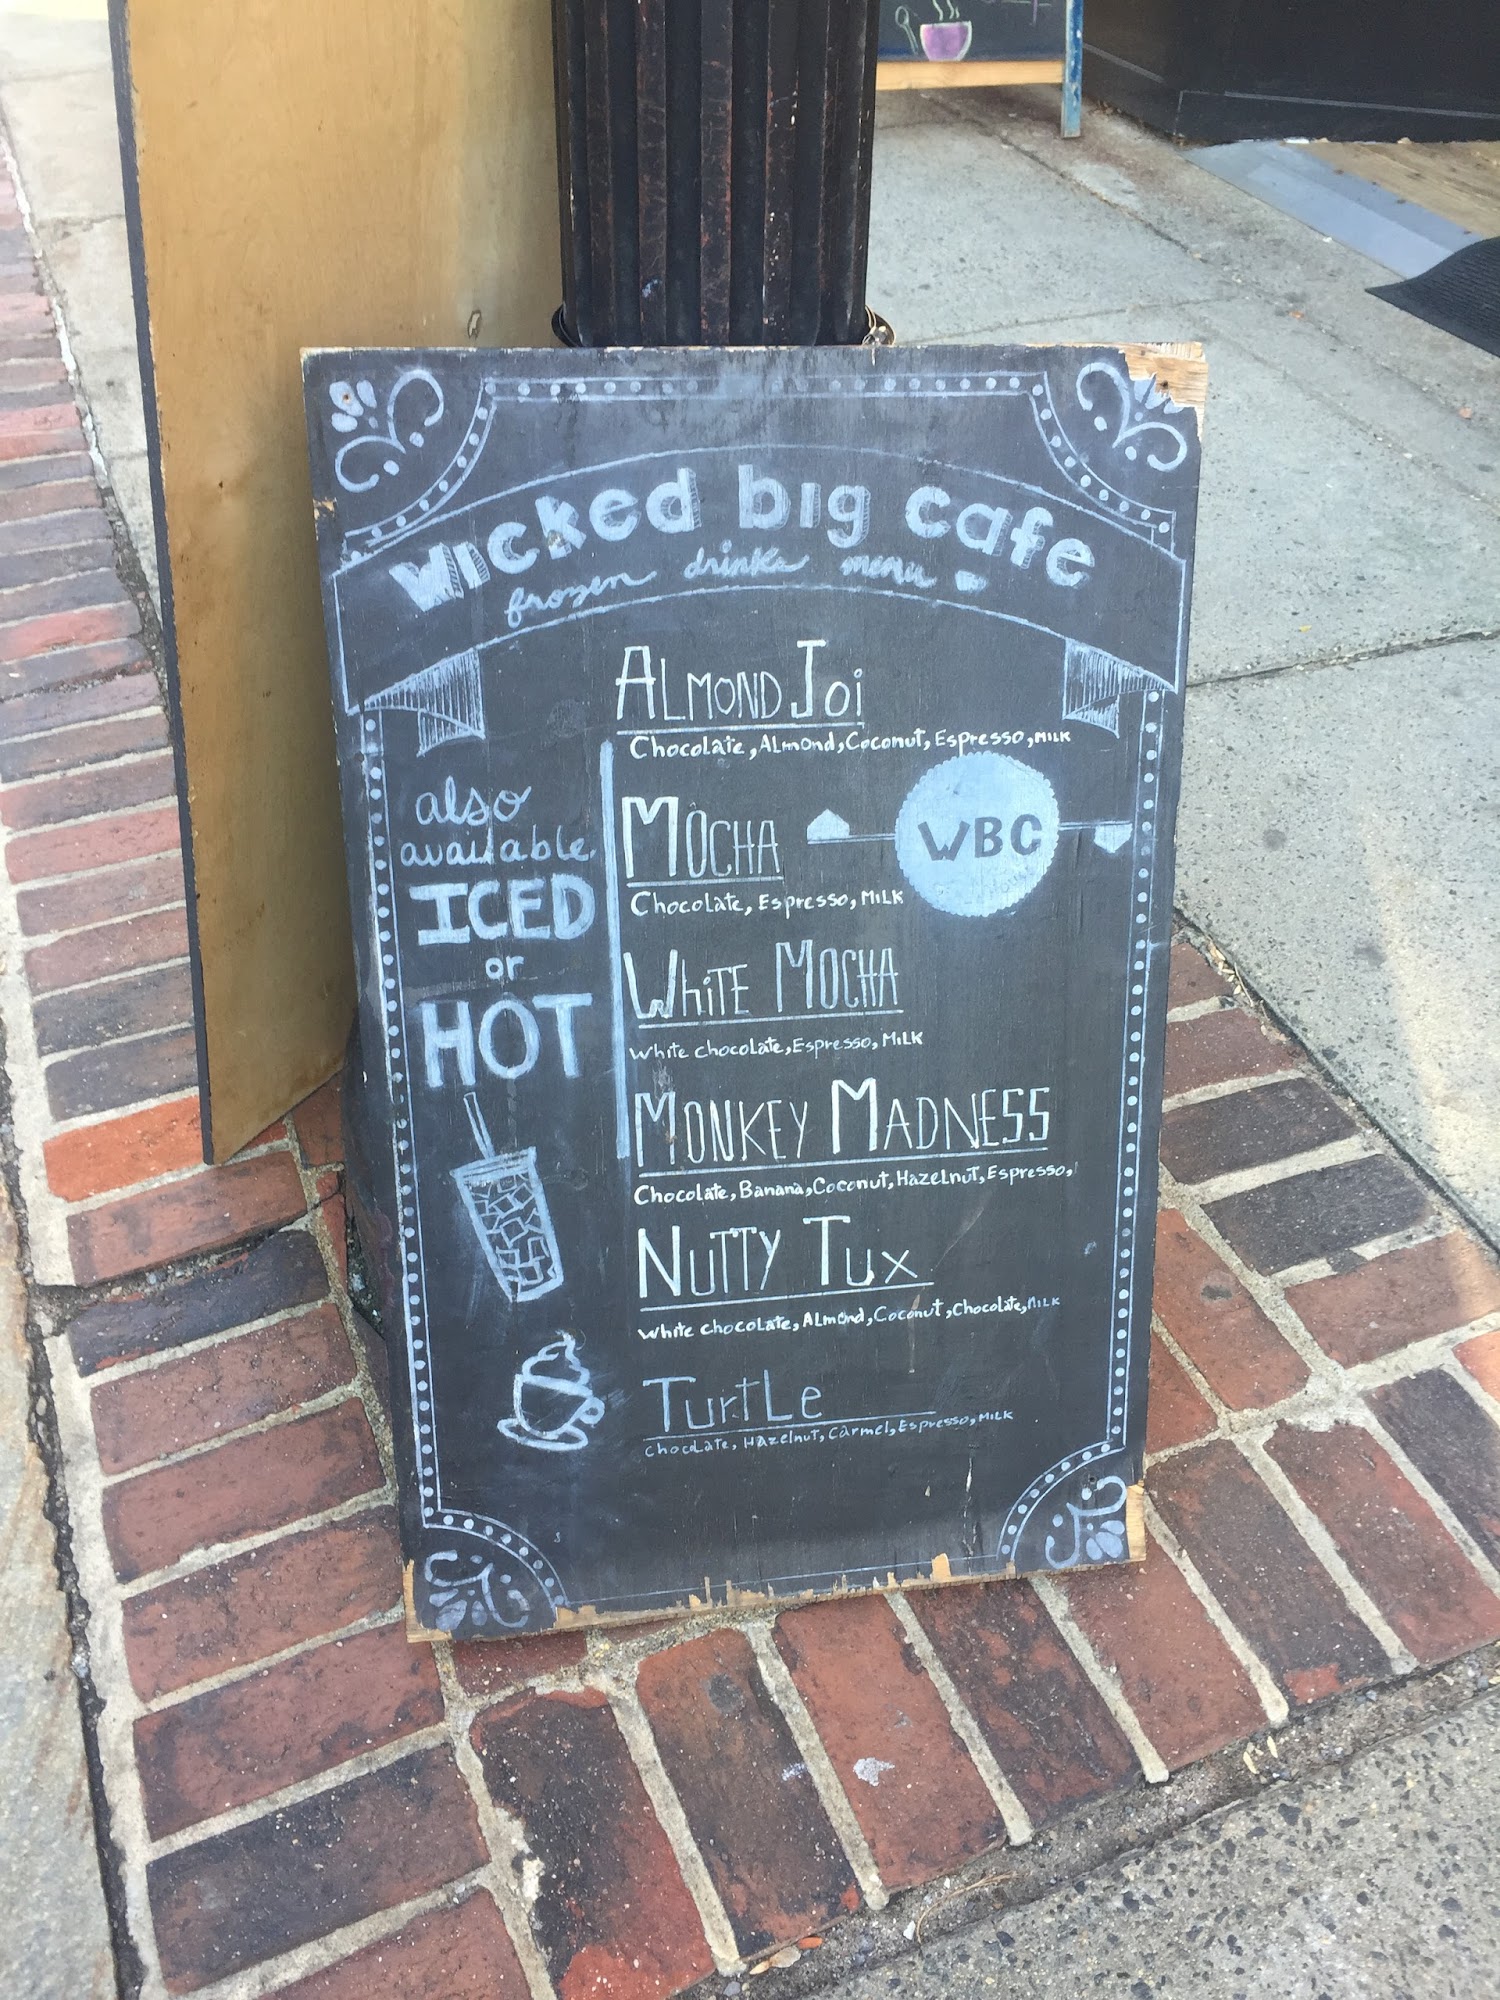 wicked big cafe
frozen drinks menu
Almond Joi
Chocolate, Almond, Coconut, Espresso, Milk
also
available
ICED
or
HOT
Mocha
Chocolate, Espresso, Milk
WBC
White Mocha
White chocolate, Espresso, Milk
Monkey Madness
Chocolate, Banana, Coconut, Hazelnut, Espresso,
Nutty Tux
White chocolate, Almond, Coconut, Chocolate, Milk
Turtle
Chocolate, Hazelnut, Carmel, Espresso, Milk